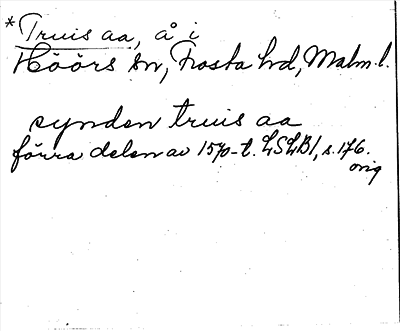 *Truis aa, å i
Höörs sn, Frosta hd, Malm. l.
synden truis aa
förra delen av 1570-t. LSLB1, s. 176.
orig